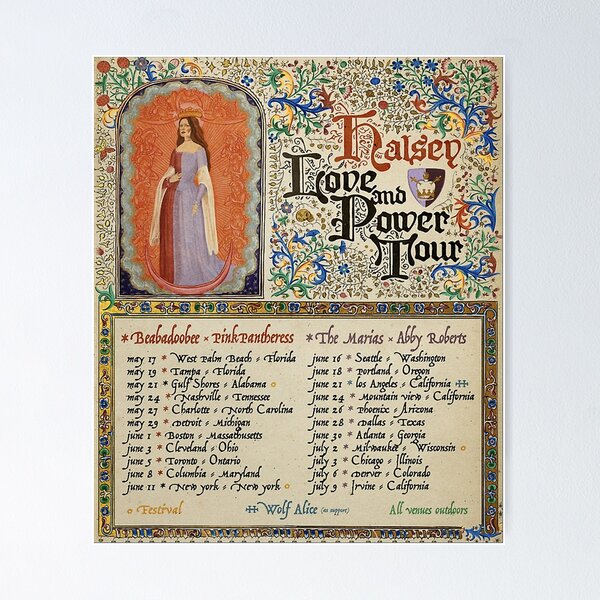 Halsey
Love and
Power
Tour
* Beabadoobee × PinkPantheress
may 17 * West Palm Beach Florida
may 19 * Tampa Florida
may 21 * Gulf Shores Alabama
may 24 * Nashville Tennessee
may 27 * Charlotte North Carolina
may 29 * Detroit Michigan
june 1 * Boston Massachusetts
june 3 * Cleveland Ohio
june 5 * Toronto Ontario
june 8 * Columbia Maryland
june 11 * New york New york
* The Marias × Abby Roberts
june 16 * Seattle Washington
june 18 * Portland Oregon
june 21 * los Angeles California
june 24 * Mountain view California
june 26 * Phoenix Arizona
june 28 * Dallas Texas
june 30 * Atlanta Georgia
july 2 * Milwaukee Wisconsin
july 3 * Chicago Illinois
july 6 * Denver Colorado
july 9 * Irvine California
Festival
Wolf Alice (as support)
All venues outdoors